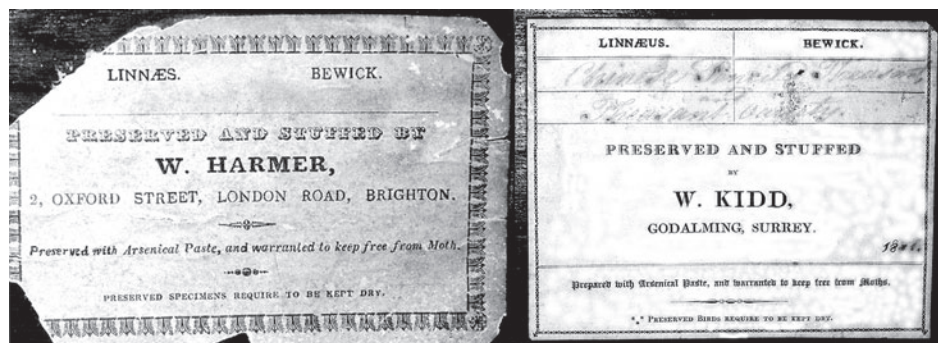 LINNÆS. BEWICK.
PRESERVED AND STUFFED BY
W. HARMER,
2, OXFORD STREET, LONDON ROAD, BRIGHTON.
Preserved with Arsenical Paste, and warranted to keep free from Moth.
PRESERVED SPECIMENS REQUIRE TO BE KEPT DRY.
LINNÆUS. BEWICK.
Chinese
Pheasant
PRESERVED AND STUFFED
BY
W. KIDD,
GODALMING, SURREY.
Prepared with Arsenical Paste, and warranted to keep free from Moths.
*⁎* PRESERVED BIRDS REQUIRE TO BE KEPT DRY.